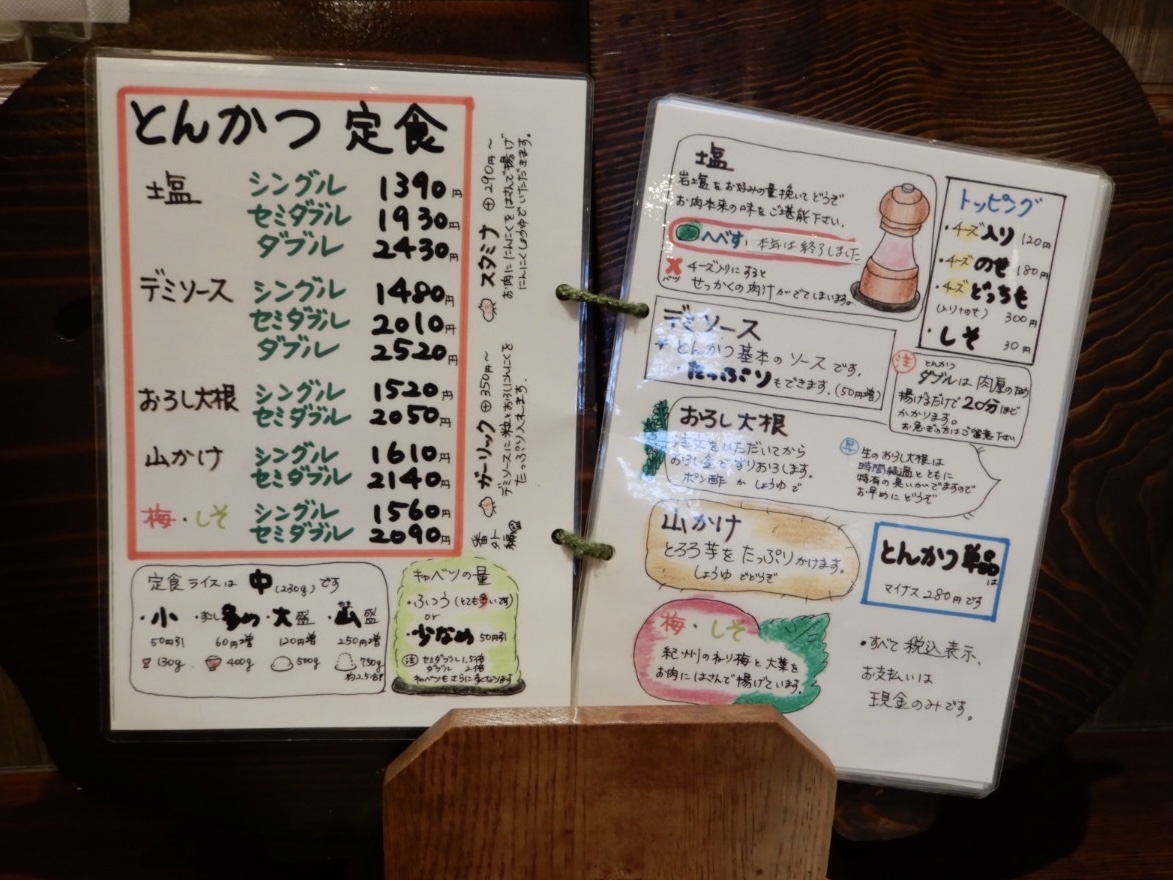 とんかつ 定食
塩 シングル 1390円
セミダブル 1930円
ダブル 2430円
デミソース シングル 1480円
セミダブル 2010円
ダブル 2520円
おろし大根 シングル 1520円
セミダブル 2050円
山かけ シングル 1610円
セミダブル 2140円
梅・しそ シングル 1560円
セミダブル 2090円
スタミナ ⊕290円〜
お肉ににんにくをはさんで揚げ
にんにくしょうゆでいただきます。
ガーリック ⊕350円〜
デミソースに粒とおろしにんにくを
たっぷり入れます。
番外編
定食ライスは 中(230g)です
・小 ・少し多め ・大盛 ・山盛
50円引 60円増 120円増 250円増
130g 400g 500g 750g
約2.5合
キャベツの量
・ふつう(とても多いです)
or
・少なめ 50円引
注 セミダブル1.5倍
ダブル 2倍
キャベツもさらに多くなります
塩
岩塩をお好みの量挽いてどうぞ
お肉本来の味をご堪能下さい。
へべす、本年は終了しました
チーズ入りにすると
せっかくの肉汁がでてしまいます。
トッピング
・チーズ入り 120円
・チーズのせ 180円
・チーズどっちも
(入り+のせ) 300円
・しそ 30円
デミソース
とんかつ基本のソースです。
たっぷりもできます。(50円増)
注 とんかつ
ダブルは肉厚の為
揚げるだけで20分ほど
かかります。
お急ぎの方はご留意下さい
おろし大根
いただいてから
おろし金ですりおろします。
ポン酢 か しょうゆ で
生のおろし大根は
時間経過とともに
特有の臭いがでますので
お早めにどうぞ
山かけ
とろろ芋をたっぷりかけます。
しょうゆ でどうぞ
とんかつ単品は
マイナス280円です
梅・しそ
紀州のねり梅と大葉を
お肉にはさんで揚げています。
・すべて税込表示、
お支払いは
現金のみです。